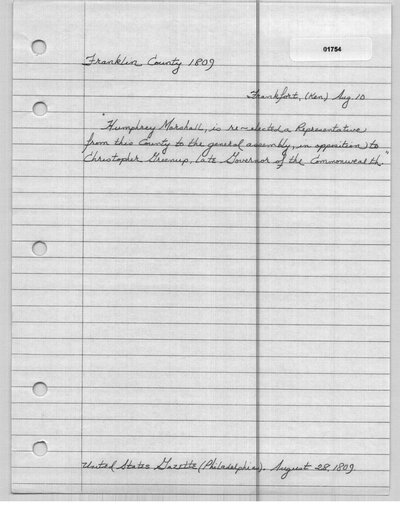 01754
Franklin County 1809
Frankfort, (Ken) Aug 10
"Humphrey Marshall, is re-elected a Representative
from this County to the general assembly, in opposition to
Christopher Greenup, late Governor of the Commonwealth."
United States Gazette (Philadelphia). August 28, 1809